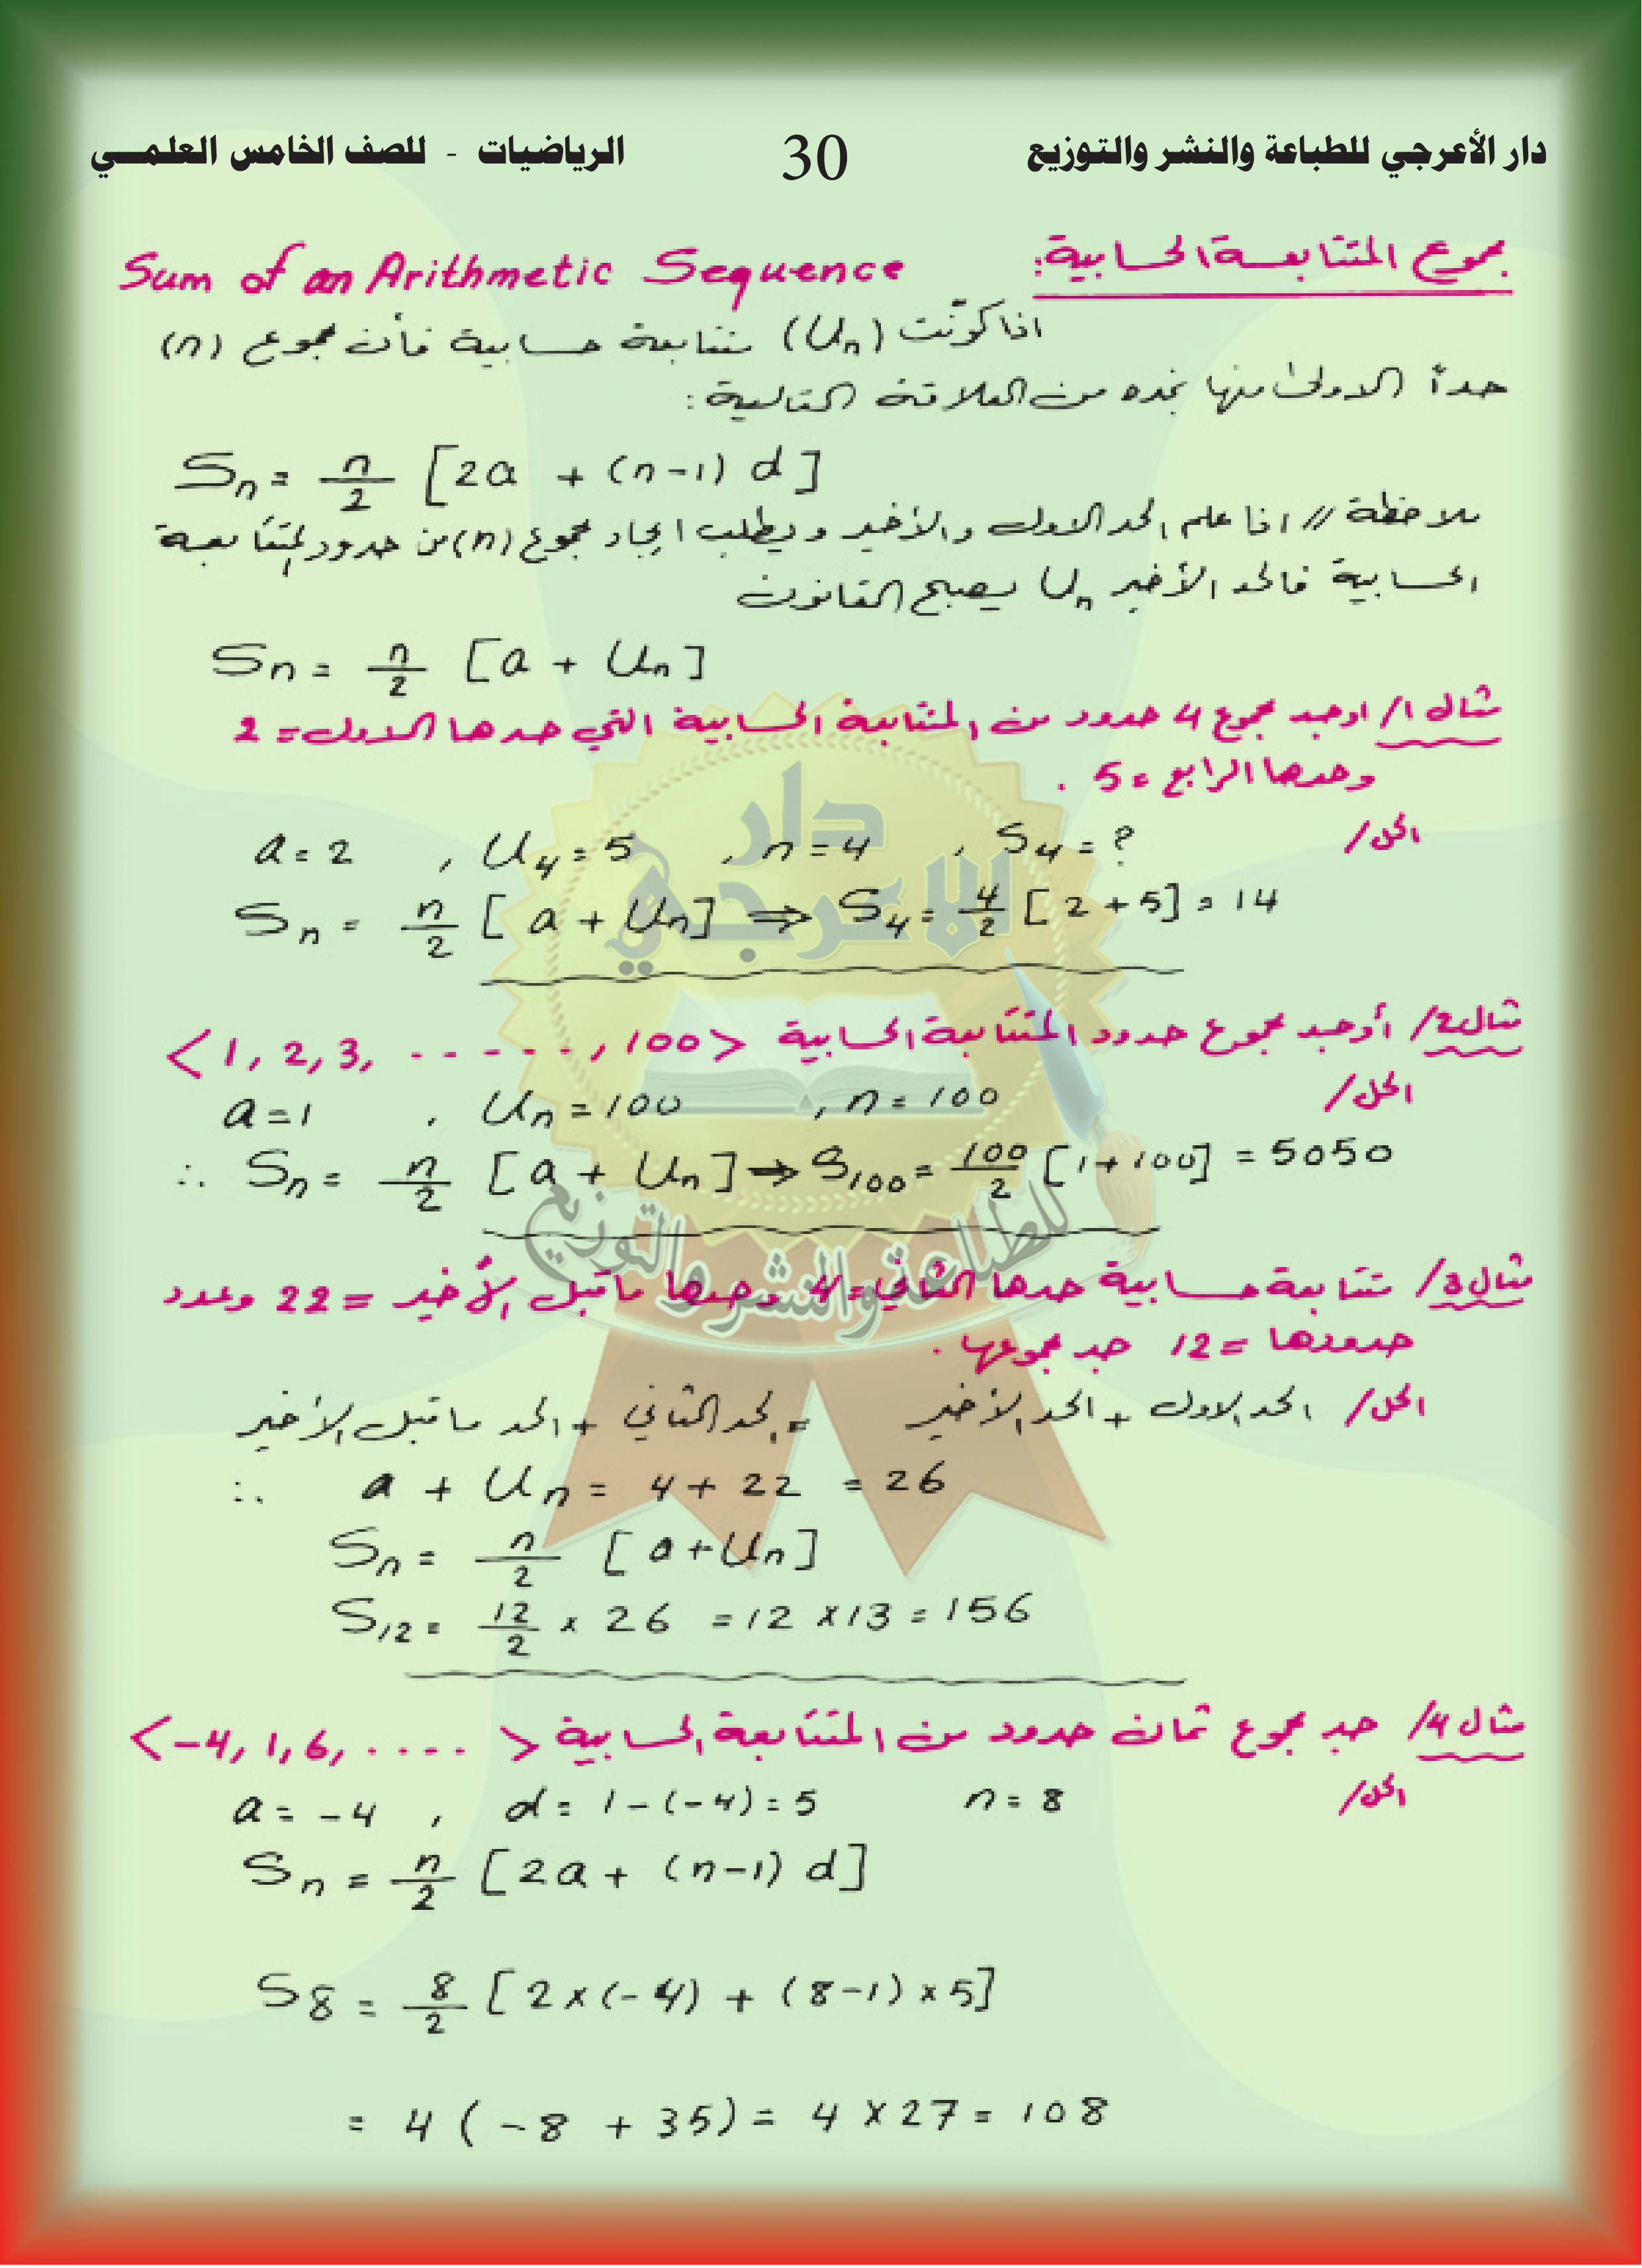 دار الأعرجي للطباعة والنشر والتوزيع 30 الرياضيات - للصف الخامس العلمـــي
مجموع المتتابعة الحسابية: Sum of an Arithmetic Sequence
اذا كوّنت (Un) متتابعة حسابية فأن مجموع (n)
حداً الاولى منها نجده من العلاقة التالية:
Sn = n/2 [2a + (n-1) d]
ملاحظة // اذا علم الحد الاول والأخير ويطلب ايجاد مجموع (n) من حدود المتتابعة
الحسابية فالحد الأخير Un يصبح القانون
Sn = n/2 [a + Un]
مثال 1/ اوجد مجموع 4 حدود من المتتابعة الحسابية التي حدها الاول = 2
وحدها الرابع = 5 .
الحل/ a = 2 , U4 = 5 , n = 4 , S4 = ?
Sn = n/2 [a + Un] ⇒ S4 = 4/2 [2+5] = 14
مثال 2/ أوجد مجموع حدود المتتابعة الحسابية <1, 2, 3, ......, 100>
الحل/ a = 1 , Un = 100 , n = 100
∴ Sn = n/2 [a + Un] → S100 = 100/2 [1+100] = 5050
مثال 3/ متتابعة حسابية حدها الثاني = 4 وحدها ماقبل الأخير = 22 وعدد
حدودها = 12 جد مجموعها .
الحل/ الحد الاول + الحد الأخير = الحد الثاني + الحد ماقبل الأخير
∴ a + Un = 4 + 22 = 26
Sn = n/2 [a+Un]
S12 = 12/2 × 26 = 12 × 13 = 156
مثال 4/ جد مجموع ثمان حدود من المتتابعة الحسابية <-4, 1, 6, .....>
الحل/ a = -4 , d = 1-(-4) = 5 n = 8
Sn = n/2 [2a + (n-1) d]
S8 = 8/2 [2×(-4) + (8-1)×5]
= 4 (-8 + 35) = 4 × 27 = 108
دار
الاعرجي
للطباعة والنشر والتوزيع